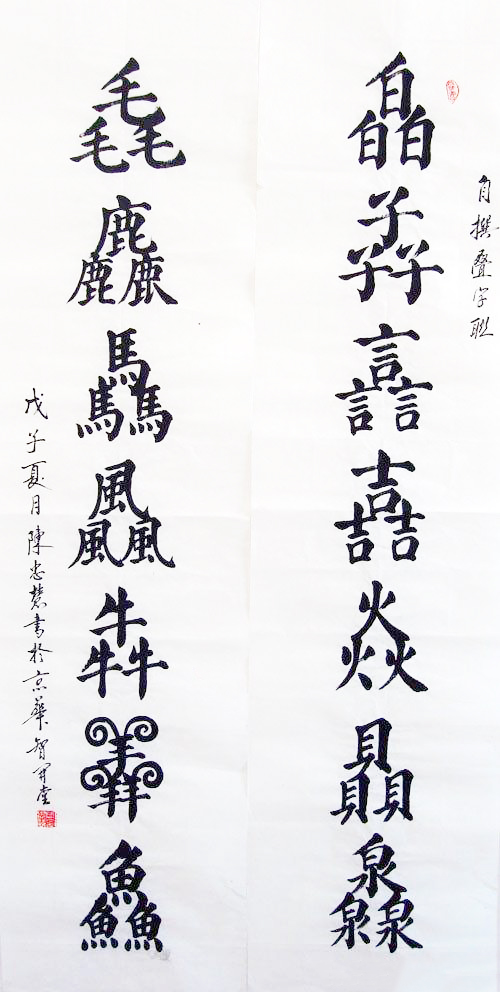 自撰叠字联
皛孨譶嚞焱贔灥
毳麤驫飍犇羴鱻
戊子夏月陳忠慧書於京華智開堂